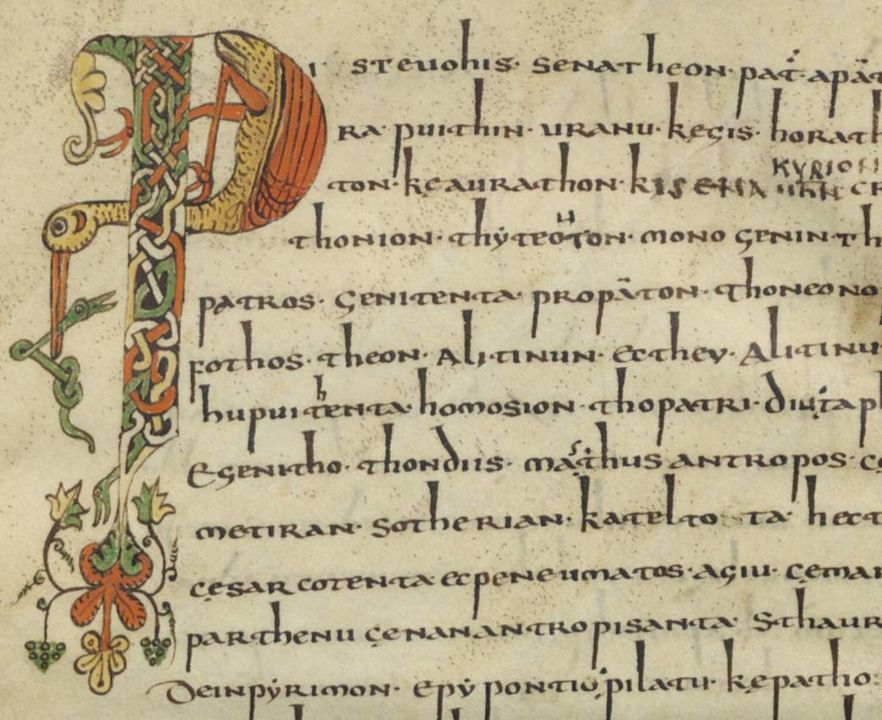 P I STEUOHIS· SENATHEON· PAT̄· APĀT
RA· PUITHIN· URANU· KEGIS· HORATH
KYRION
TON· KEAURATHON· KISENA
THONION· THYTEOTON· MONO GENIN· TH
PATROS· GENITENTA· PROPĀTON· THONEONO
FOTHOS· THEON· ALITINUN· ECTHEY· ALITINU
HUPUITHENTA· HOMOSION· THOPATRI·
EGENITHO· THONDIIS· ANTROPOS· CE
METIRAN· SOTHERIAN· KATELTO TA· HECT
CESAR COTENTA ECPENEUMATOS· AGIU· CEMAR
PARTHENU CENANANTROPISANTA· STHAUR
DEINPYRIMON· EPY PONTIU PILATU· KEPATHO: